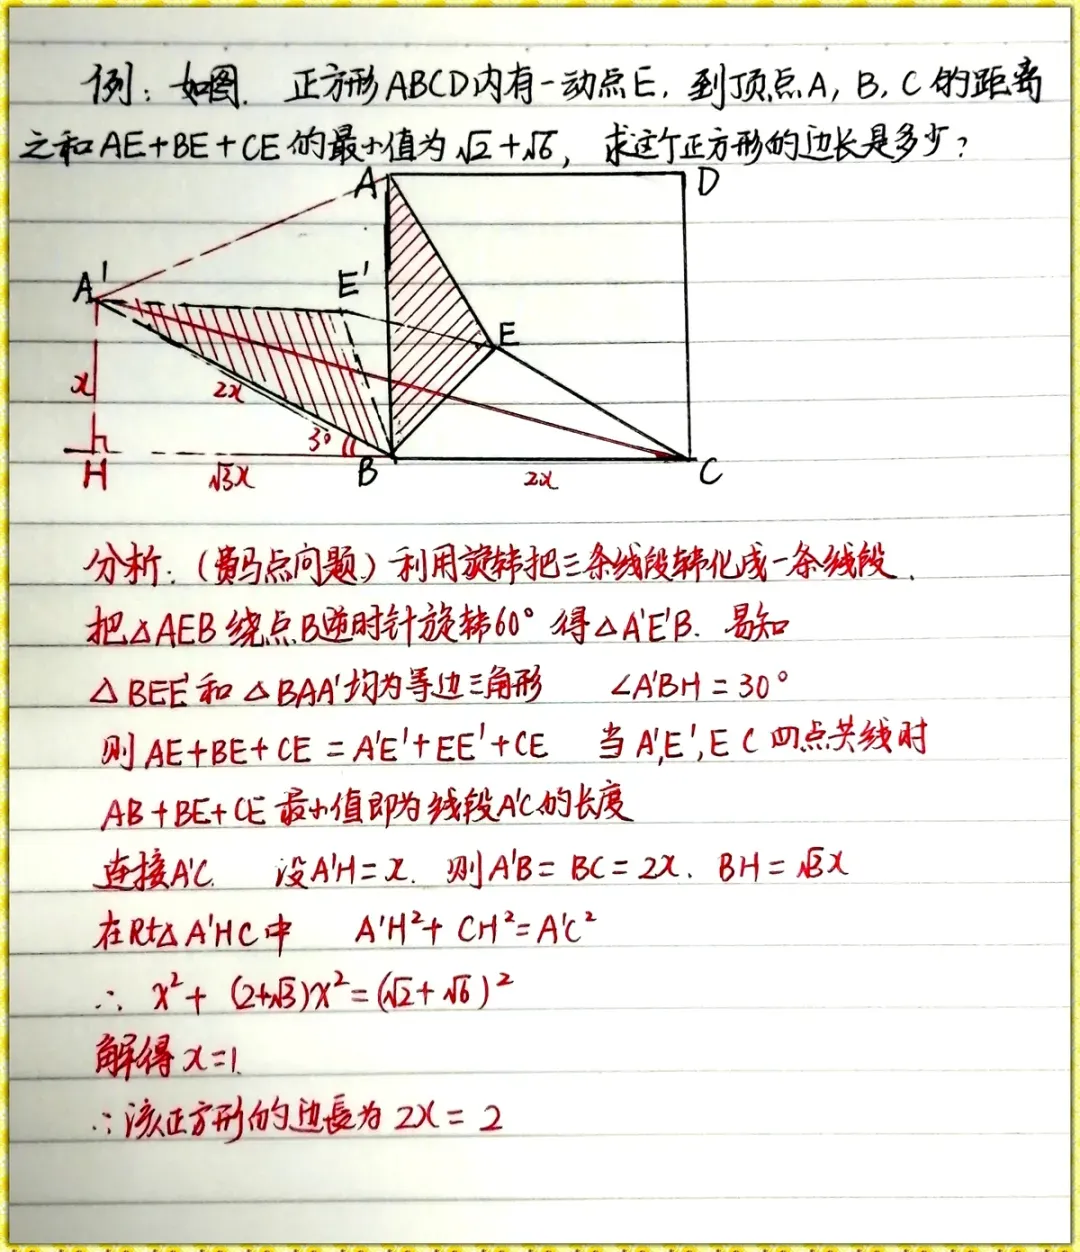 例：如图. 正方形ABCD内有一动点E, 到顶点A, B, C的距离
之和AE+BE+CE的最小值为√2+√6, 求这个正方形的边长是多少?
A D
A' E'
E
x 2x 30
H √3x B 2x C
分析：(费马点问题) 利用旋转把三条线段转化成一条线段.
把△AEB绕点B逆时针旋转60°得△A'E'B. 易知
△BEE'和△BAA'均为等边三角形 ∠A'BH=30°
则AE+BE+CE=A'E'+EE'+CE 当A',E',E C四点共线时
AB+BE+CE最小值即为线段A'C的长度
连接A'C. 设A'H=x. 则A'B=BC=2x. BH=√3x
在Rt△A'HC中 A'H²+CH²=A'C²
∴ x²+(2+√3)x²=(√2+√6)²
解得x=1.
∴该正方形的边長为2x=2